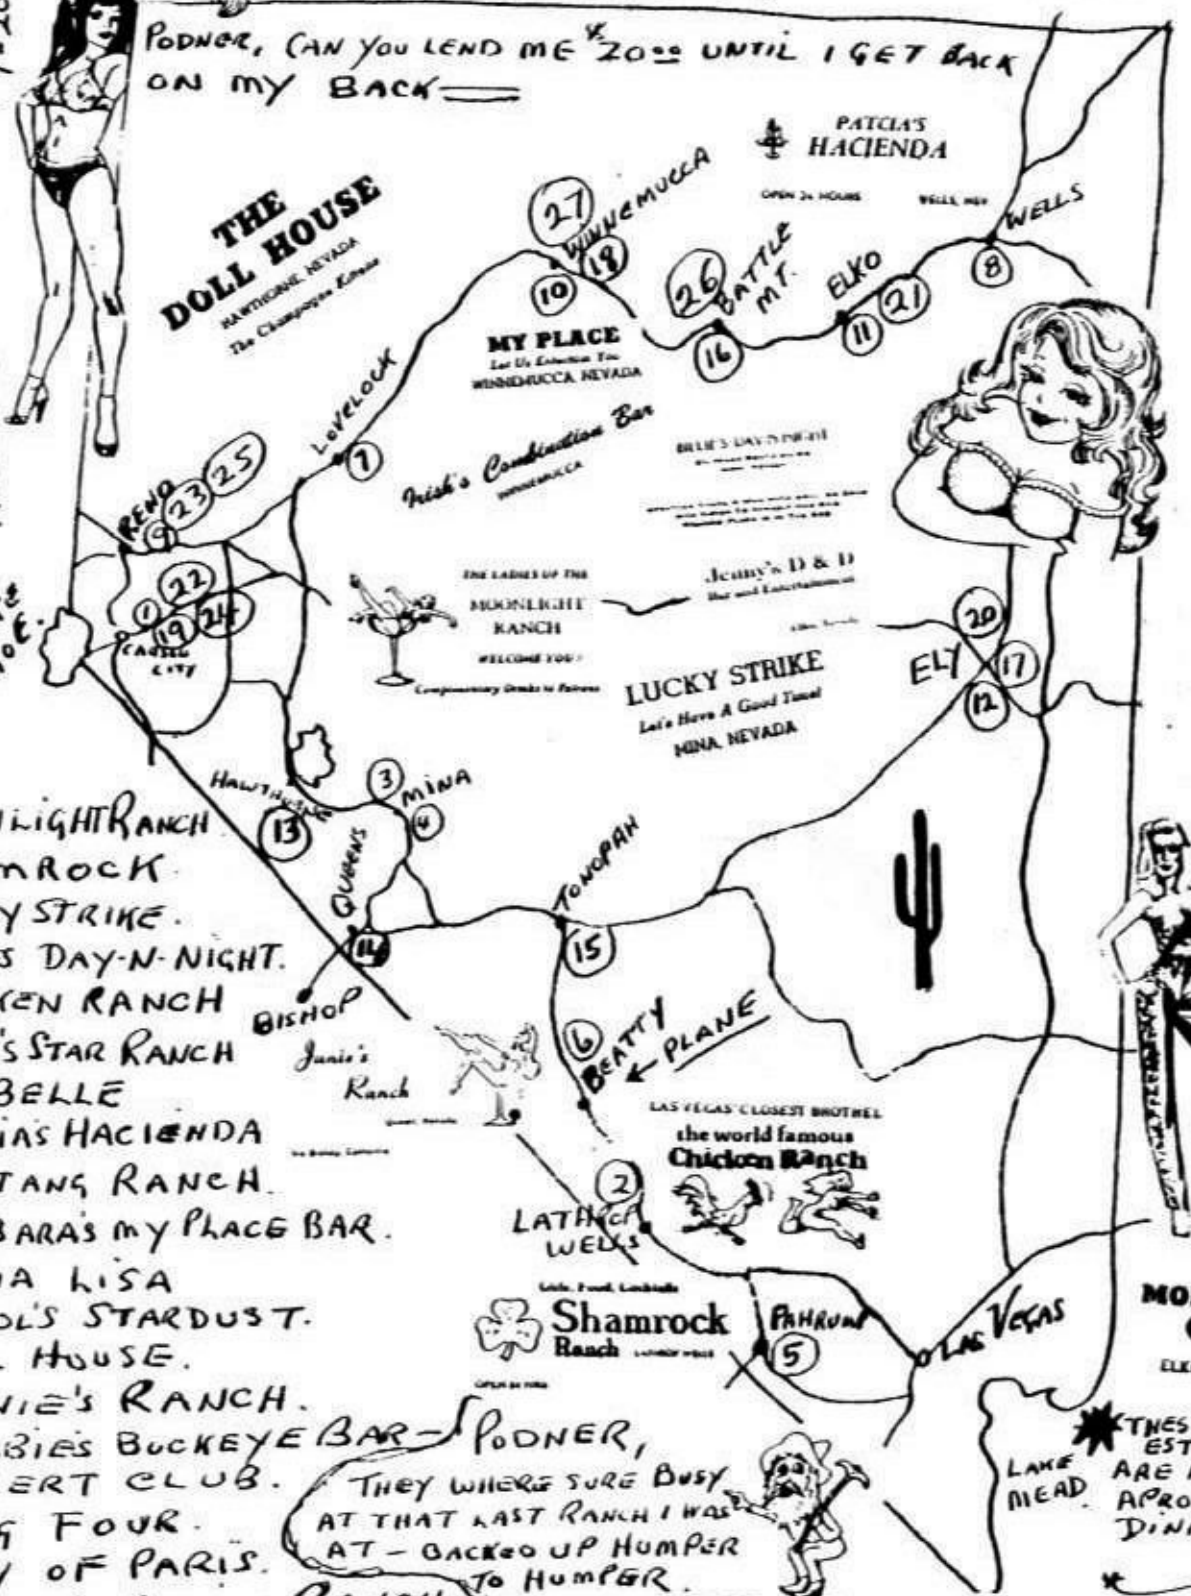 PODNER, CAN YOU LEND ME $20.00 UNTIL I GET BACK
ON MY BACK
PATCIA'S
HACIENDA
OPEN 24 HOURS
WELLS, NEV
THE
DOLL HOUSE
HAWTHORNE, NEVADA
The Champagne
27
WINNEMUCCA
18
10
26
BATTLE
MT.
16
ELKO
21
11
WELLS
8
MY PLACE
Let Us Entertain You
WINNEMUCCA, NEVADA
LOVELOCK
7
Irish's Combination Bar
WINNEMUCCA
BILLIE'S DAY N NIGHT
RENO
9
23
25
1
22
19
24
CITY
THE LADIES OF THE
MOONLIGHT
RANCH
WELCOME YOU!
Complimentary Drinks to Patrons
Jenny's D & D
Bar and Entertainment
LUCKY STRIKE
Let's Have A Good Time!
MINA, NEVADA
20
ELY
17
12
3
MINA
4
13
QUEENS
14
BISHOP
TONOPAH
15
6
BEATTY
← PLANE
Janie's
Ranch
LAS VEGAS' CLOSEST BROTHEL
the world famous
Chicken Ranch
2
LATHROP
WELLS
Shamrock
Ranch
PAHRUMP
5
LAS VEGAS
LAKE
MEAD
LIGHT RANCH
MROCK
Y STRIKE.
S DAY-N-NIGHT.
KEN RANCH
'S STAR RANCH
BELLE
IA'S HACIENDA
TANG RANCH.
BARA'S MY PLACE BAR.
A LISA
OL'S STARDUST.
L HOUSE.
NIE'S RANCH.
BIE'S BUCKEYE BAR
ERT CLUB.
G FOUR.
Y OF PARIS.
PODNER,
THEY WHERE SURE BUSY
AT THAT LAST RANCH I WAS
AT - BACKED UP HUMPER
TO HUMPER.
MO
ELK
THES
EST
ARE
APRO
DIN